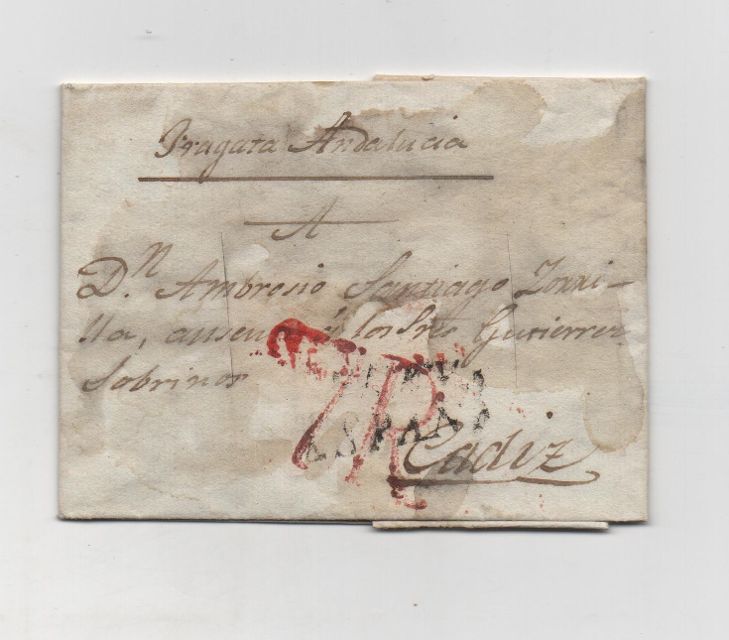 Fragata Andalucia
A
D.n Ambrosio Santiago Zorri-
lla, ausente á los Sres Gutierrez
Sobrinos
7R
ESPAÑA
Cadiz